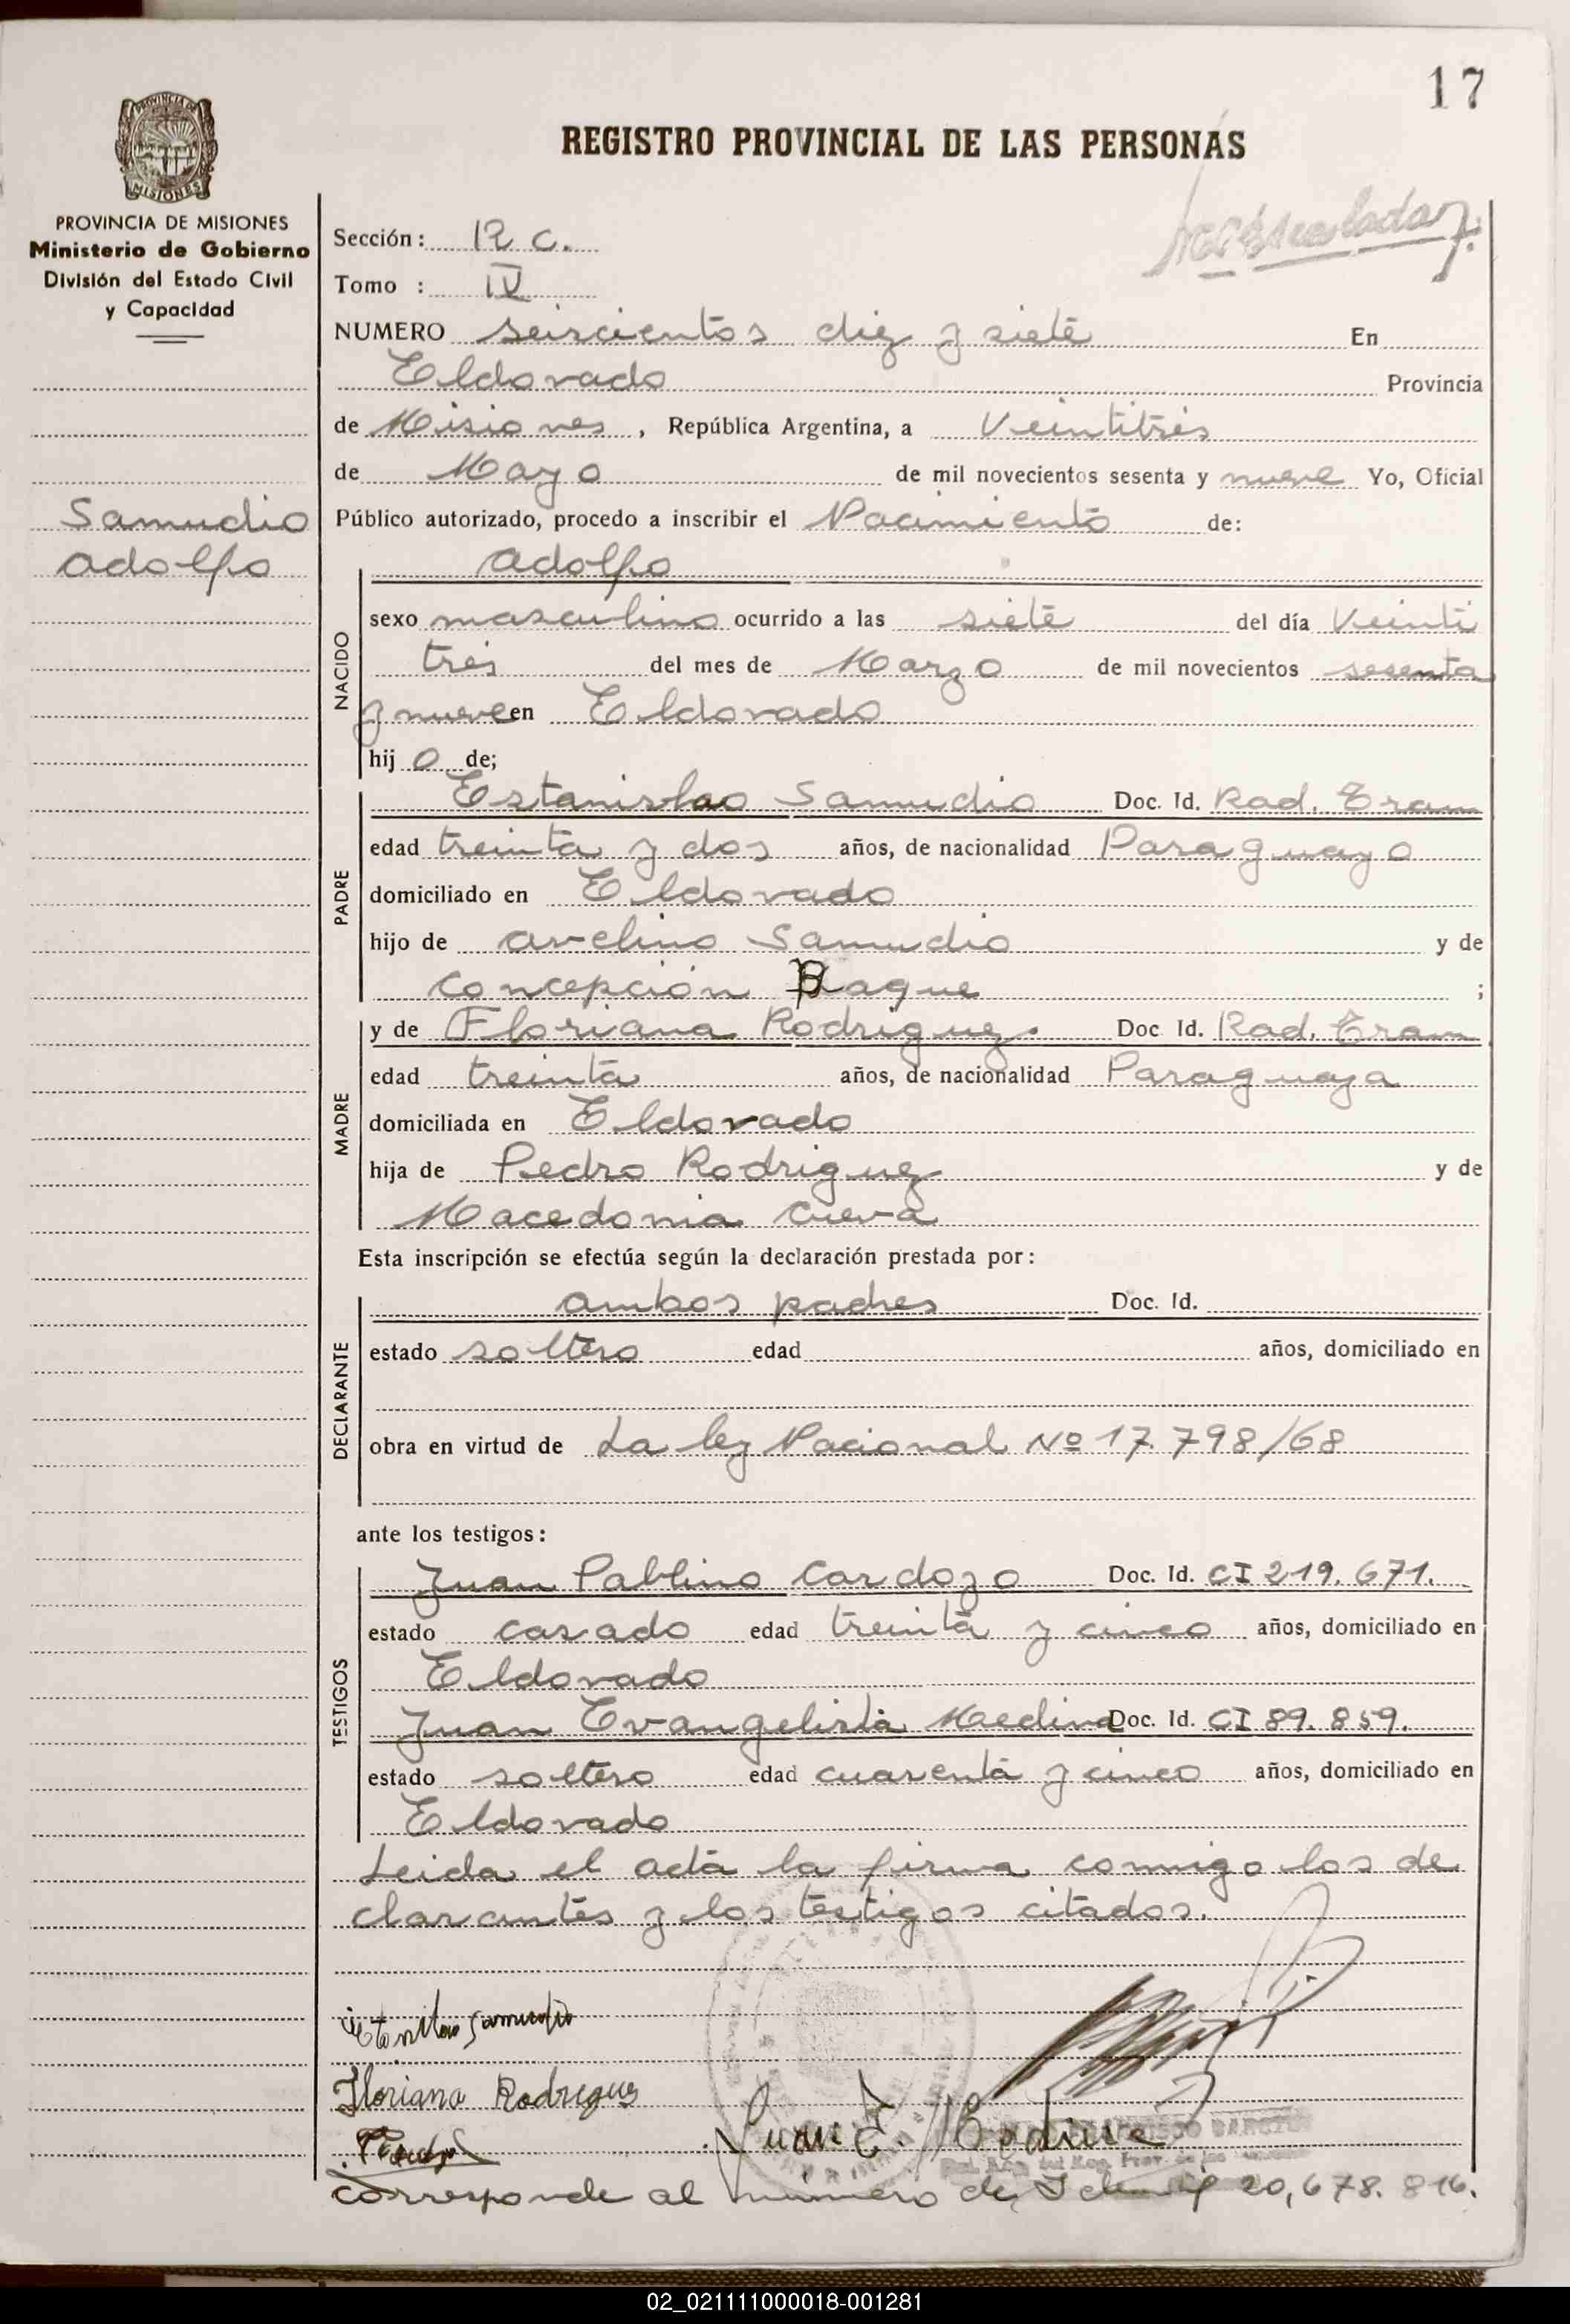 17
REGISTRO PROVINCIAL DE LAS PERSONAS
PROVINCIA DE MISIONES
Ministerio de Gobierno
División del Estado Civil
y Capacidad
Samudio
Adolfo
Sección: R C.
Tomo : IV
NUMERO seiscientos diez y siete En
Eldorado Provincia
de Misiones, República Argentina, a Veintitrés
de Mayo de mil novecientos sesenta y nueve Yo, Oficial
Público autorizado, procedo a inscribir el Nacimiento de:
Adolfo
NACIDO
sexo masculino ocurrido a las siete del día Veinti
tres del mes de Marzo de mil novecientos sesenta
y nueve en Eldorado
hij o de;
PADRE
Estanislao Samudio Doc. Id. Rad. Tram
edad treinta y dos años, de nacionalidad Paraguayo
domiciliado en Eldorado
hijo de Avelino Samudio y de
Concepción Baque ;
MADRE
y de Floriana Rodriguez. Doc. Id. Rad. Tram
edad treinta años, de nacionalidad Paraguaya
domiciliada en Eldorado
hija de Pedro Rodriguez y de
Macedonia Cueva
Esta inscripción se efectúa según la declaración prestada por:
DECLARANTE
ambos padres Doc. Id.
estado soltero edad años, domiciliado en
obra en virtud de La ley Nacional Nº 17.798/68
ante los testigos:
TESTIGOS
Juan Pablino Cardozo Doc. Id. CI 219.671.
estado casado edad treinta y cinco años, domiciliado en
Eldorado
Juan Evangelista Medina Doc. Id. CI 89.859.
estado soltero edad cuarenta y cinco años, domiciliado en
Eldorado
Leida el acta la firma conmigo los de
clarantes y los testigos citados.
Estanislao Samudio
Floriana Rodriguez
Juan E. Medina
corresponde al número de 20,678.816.
02_021111000018-001281